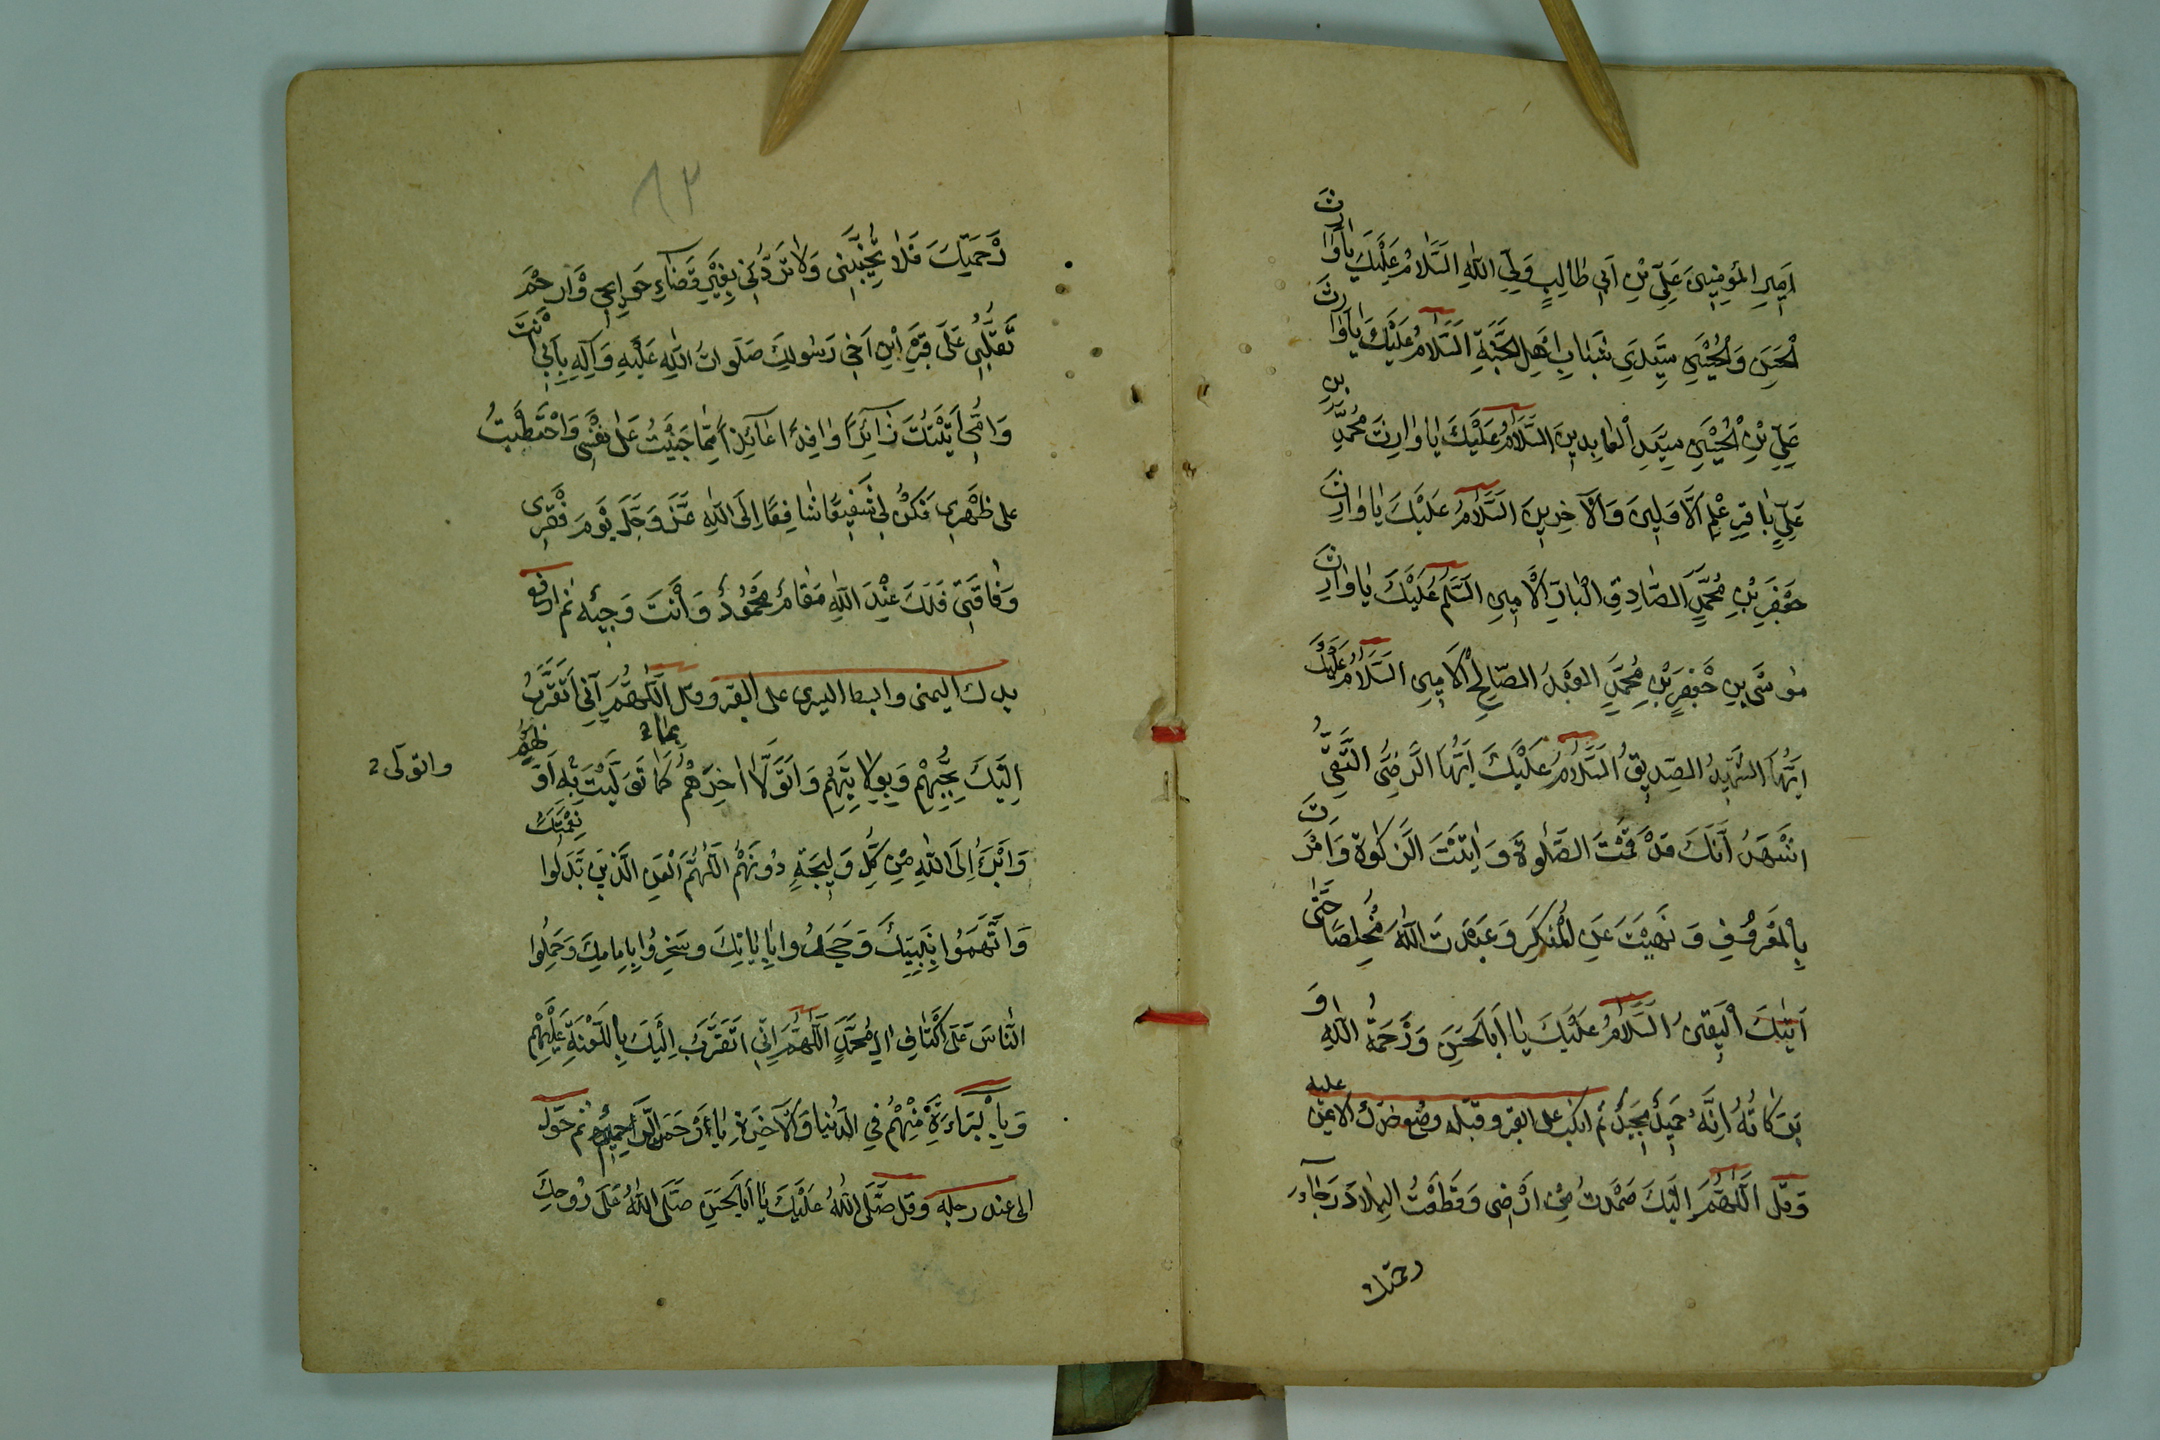 اَمِيرِ المُؤمِنِينَ عَلِيِّ بْنِ اَبِي طٰالِبٍ وَلِيِّ اللهِ السَّلامُ عَلَيْكَ يٰا وٰارِثَ
الْحَسَنِ وَالْحُسَيْنِ سَيِّدَيْ شَبٰابِ اَهْلِ الجَنَّةِ السَّلامُ عَلَيْكَ يٰا وٰارِثَ
عَلِيِّ بْنِ الْحُسَيْنِ سَيِّدِ الْعٰابِدِينَ السَّلامُ عَلَيْكَ يٰا وٰارِثَ مُحَمَّدِ بْنِ
عَلِيٍّ بٰاقِرِ عِلْمِ الاَوَّلِينَ وَالآخِرِينَ السَّلامُ عَلَيْكَ يٰا وٰارِثَ
جَعْفَرِ بْنِ مُحَمَّدٍ الصّٰادِقِ الْبٰارِّ الاَمِينِ السَّلٰمُ عَلَيْكَ يٰا وٰارِثَ
مُوسَى بْنِ جَعْفَرِ بْنِ مُحَمَّدٍ العَبْدِ الصّالِحِ الاَمِينِ السَّلامُ عَلَيْكَ
اَيُّهَا الشَّهِيدُ الصِّدِيقُ السَّلامُ عَلَيْكَ اَيُّهَا الرَّضِىُّ التَّقِيُّ
اَشْهَدُ اَنَّكَ قَدْ قُمْتَ الصَّلٰوةَ وَاٰتَيْتَ الزَّكٰوةَ وَاَمَرْتَ
بِالْمَعْرُوفِ وَنَهَيْتَ عَنِ الْمُنْكَرِ وَعَبَدْتَ اللهَ مُخْلِصًا حَتّٰى
اَتٰيكَ الْيَقِينُ السَّلامُ عَلَيْكَ يٰا اَبَا الحَسَنِ وَرَحْمَةُ اللهِ وَ
بَرَكاتُهُ اِنَّهُ حَمِيدٌ مَجِيدٌ ثم انكب على القبر وقبّله وضع خدّك الايمن عليه
وَقل اَللّٰهُمَّ اِلَيْكَ صَمَدْتُ مِنْ اَرْضِى وَقَطَعْتُ البِلادَ رَجٰاءَ
رحمتك
٨٣
رَحْمَتِكَ فَلا تُخَيِّبْنِى وَلا تَرُدَّنِي بِغَيْرِ قَضٰاءِ حَوائِجِي وَارْحَمْ
تَقَلُّبِي عَلَى قَبْرِ ابْنِ اَخِي رَسُولِكَ صَلَواتُ اللهِ عَلَيْهِ وَآلِهِ بِاَبِي اَنْتَ
وَاُمِّي اَتَيْتُكَ زٰائِرًا وٰافِدًا عٰائِذًا مِمّا جَنَيْتُ عَلى نَفْسِى وَاحْتَطَبْتُ
على ظَهْرِي فَكُنْ لِي شَفِيعًا شٰافِعًا اِلَى اللهِ عَزَّ وَجَلَّ يَوْمَ فَقْرِى
وَفٰاقَتِى فَلَكَ عِنْدَ اللهِ مَقٰامٌ مَحْمُودٌ وَاَنْتَ وَجِيْهٌ ثم ارفع
يدك اليمنى وابسط اليسرى على القبر وقل اَللّٰهُمَّ اِنِّي اَتَقَرَّبُ
اِلَيْكَ بِحُبِّهِمْ وَبِوِلايَتِهِمْ وَاَتَوَلّٰا اٰخِرَهُمْ كَمٰا تَوَلَّيْتُ بِهِ اَوَّلَهُمْ
بما
واتولى
وَاَبْرَءُ اِلَى اللهِ مِنْ كُلِّ وَلِيجَةٍ دُونَهُمْ اَللّٰهُمَّ الْعَنِ الَّذِينَ بَدَّلُوا نِعْمَتَكَ
وَاتَّهَمُوا نَبِيَّكَ وَجَحَدُوا بِاٰيٰاتِكَ وَسَخِرُوا بِاِمٰامِكَ وَحَمِلُوا
النّاسَ عَلَى اَكْتٰافِ الِ مُحَمَّدٍ اَللّٰهُمَّ اِنِّي اَتَقَرَّبُ اِلَيْكَ بِاللَّعْنَةِ عَلَيْهِمْ
وَبِالْبَرَاءَةِ مِنْهُمْ فِي الدُّنْيٰا وَالآخِرَةِ يٰا اَرْحَمَ الرّاحِمِينَ ثم حَوّل
الى عند رجليه وقل صَلَّى اللهُ عَلَيْكَ يٰا اَبَا الحَسَنِ صَلَّى اللهُ عَلَى رُوحِكَ